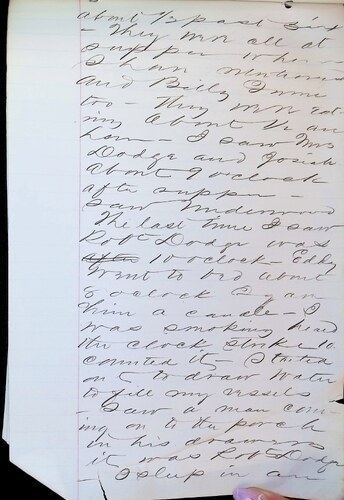 about 1/2 past six
- They were all at
supper when -
I have mentioned
and Billy
too - They were eat-
ing about 1/2 an
hour - I saw Mrs
Dodge and Josiah
about 9 o'clock
after supper -
saw Underwood
The last time I saw
Robt Dodge was
after 10 o'clock - Eddy
went to bed about
8 o'clock
him a candle - I
was smoking heard
the clock strike 10
counted it - Started
out to draw water
to fill my vessels
- Saw a man com-
ing on to the porch
in his drawers
it was Robt Dodge
- I sleep in an